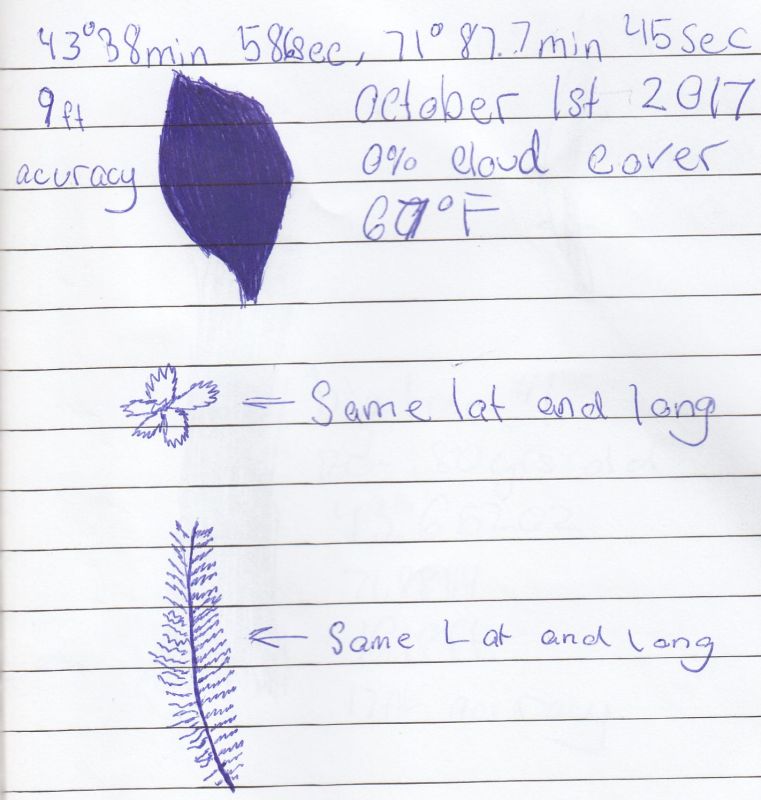 43°38min 586sec, 71° 87.7min 45sec
9ft
acuracy
October 1st 2017
0% cloud cover
67°F
Same lat and long
Same Lat and Long